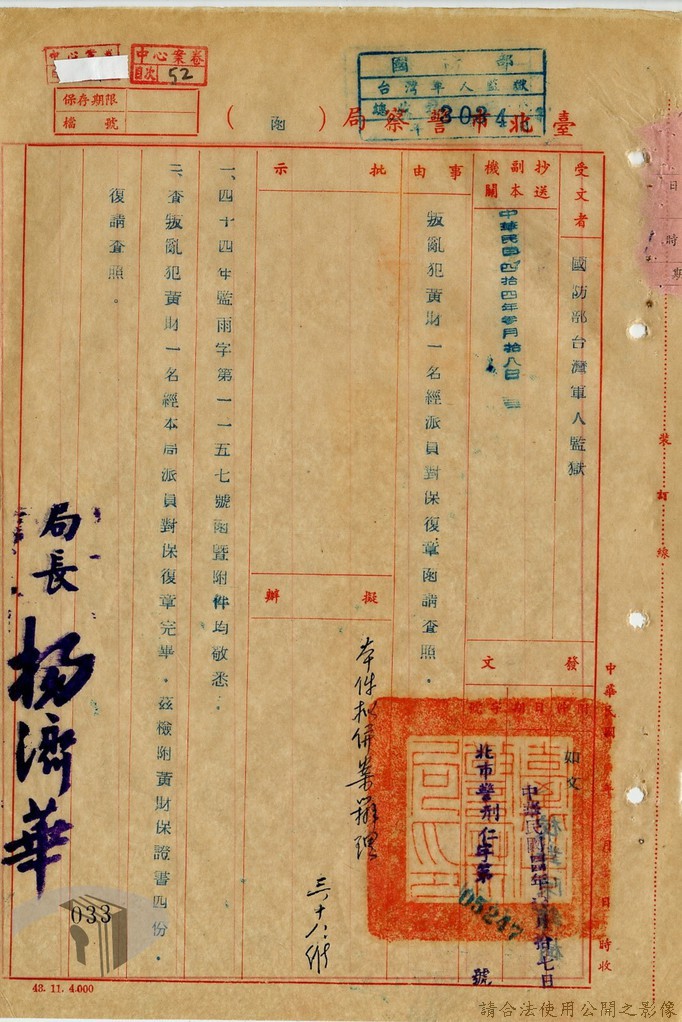 中心案卷
中心案卷
目次 52
保存期限
檔號
國防部
台灣軍人監獄
3034
臺北市警察局（函）
受文者
國防部台灣軍人監獄
抄送
副本
機關
中華民國四拾四年參月拾八日
事由
叛亂犯黃財一名經派員對保復章函請查照。
批示
擬辦
本件擬併案辦理
三、十八、
發文
附件
日期
字號
如文
中華民國四四年 月拾七日
北市警刑仁字第
05247
號
一、四十四年監雨字第一一五七號函暨附件均敬悉。
二、查叛亂犯黃財一名經本局派員對保復章完畢。茲檢附黃財保證書四份。
復請查照。
局長 楊濟華
裝訂線
中華民國 年 月 日 時收
日
時
期
033
43.11.4.000
請合法使用公開之影像